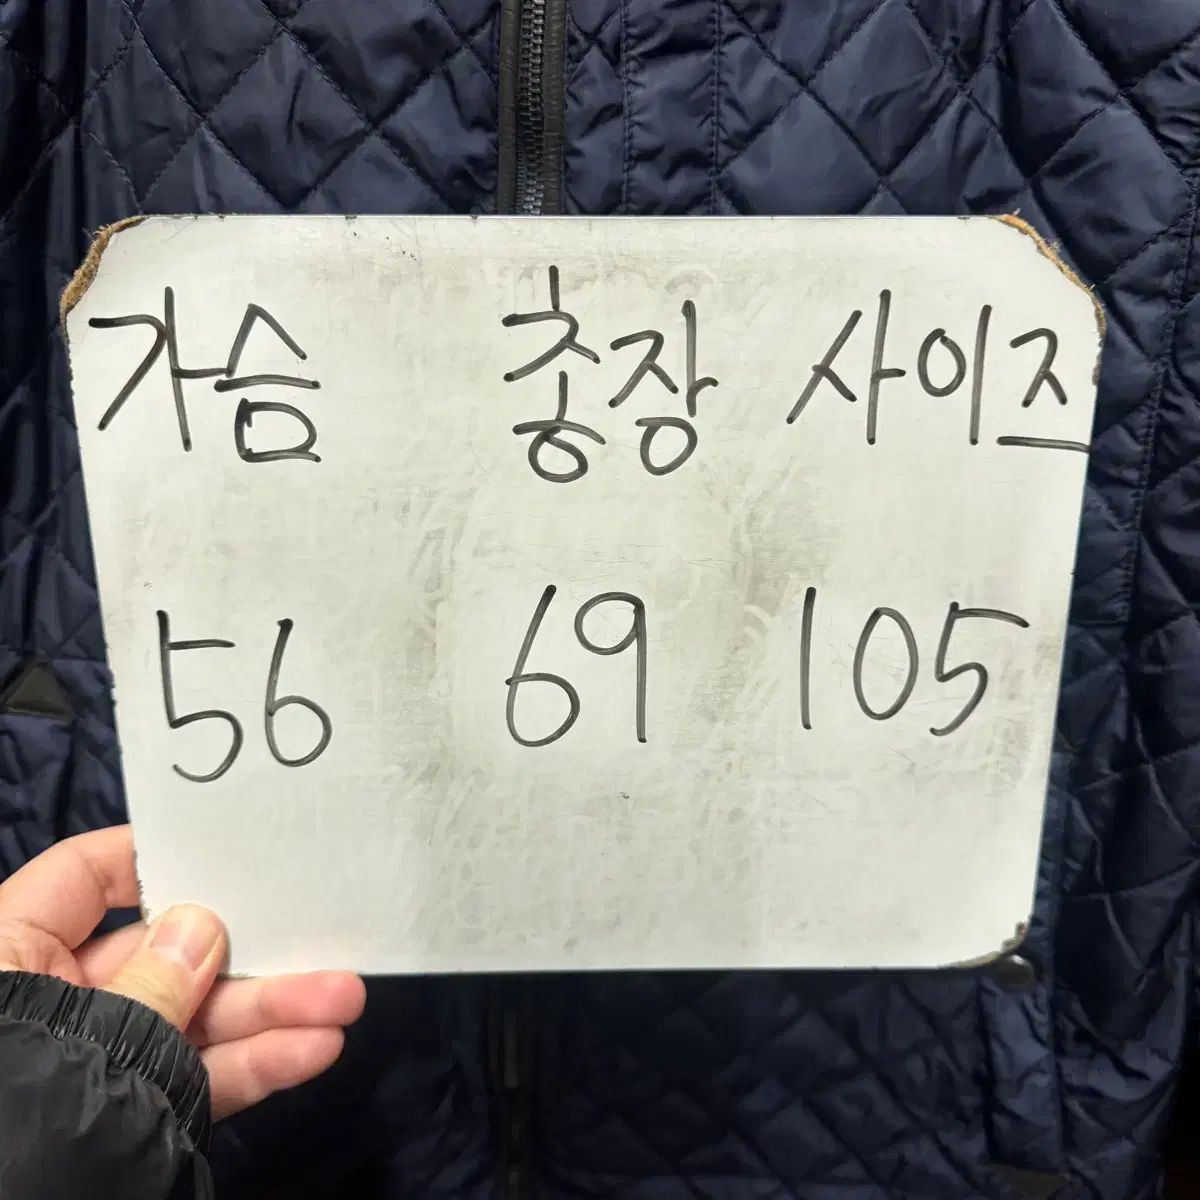 가슴 총장 사이즈
56 69 105